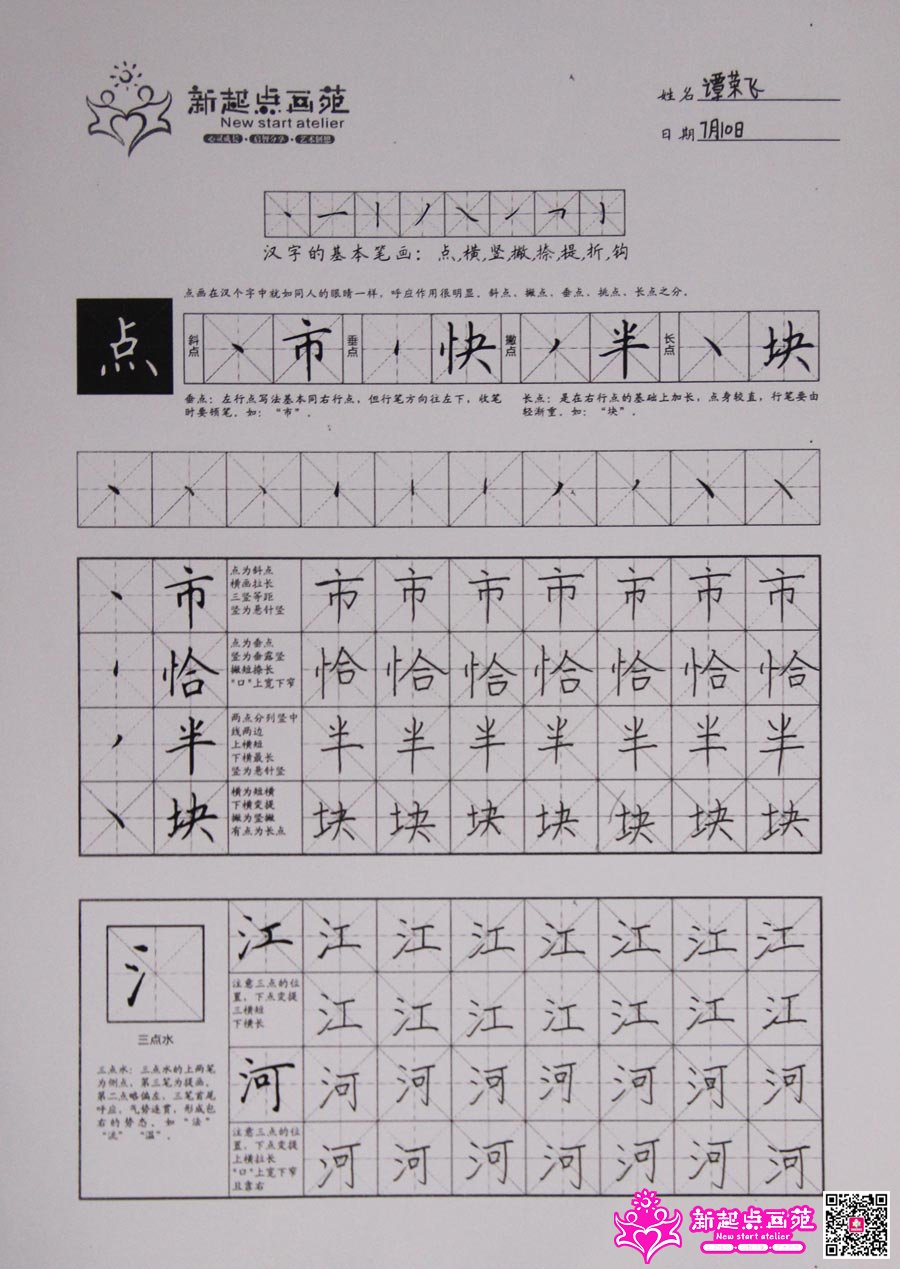 新起点画苑
New start atelier
姓名 谭荣飞
日期 7月10日
汉字的基本笔画：点,横,竖,撇,捺,提,折,钩
点画在汉个字中就如同人的眼睛一样，呼应作用很明显。斜点、撇点、垂点、挑点、长点之分。
点
斜点 市 垂点 快 撇点 半 长点 块
垂点：左行点写法基本同右行点，但行笔方向往左下，收笔
时要顿笔。如：“市”。
长点：是在右行点的基础上加长，点身较直，行笔要由
轻渐重。如：“块”。
市
点为斜点
横画拉长
三竖等距
竖为悬针竖
市 市 市 市 市 市 市
恰
点为垂点
竖为垂露竖
撇短捺长
“口”上宽下窄
恰 恰 恰 恰 恰 恰 恰
半
两点分列竖中
线两边
上横短
下横最长
竖为悬针竖
半 半 半 半 半 半 半
块
横为短横
下横变提
撇为竖撇
有点为长点
块 块 块 块 块 块 块
氵
三点水
三点水：三点水的上两笔
为侧点，第三笔为提画。
第二点略偏左，三笔首尾
呼应，气势连贯，形成包
右的势态。如“法”
“流” “温”。
江 江 江 江 江 江 江 江
注意三点的位
置，下点变提
三横短
下横长
江 江 江 江 江 江 江
河 河 河 河 河 河 河 河
注意三点的位
置，下点变提
上横拉长
“口”上宽下窄
且靠右
河 河 河 河 河 河 河
新起点画苑
New start atelier